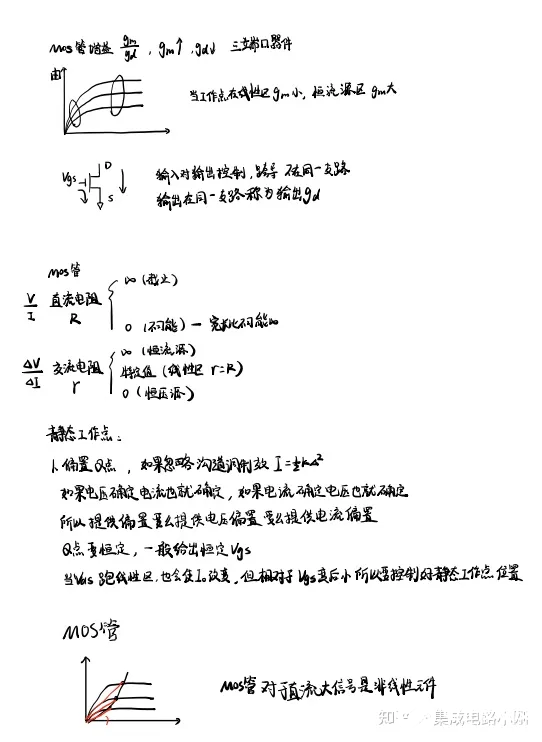 MOS管增益 gm/gd , gm↑ , gd↓ 三端口器件
当工作点在线性区 gm小, 恒流源区 gm大
Vgs D
S
输入对输出控制, 跨导 不在同一支路
输出在同一支路称为输出gd
MOS管
∞ (截止)
V/I 直流电阻 R
0 (不可能) — 完美比不可能∞
∞ (恒流源)
ΔV/ΔI 交流电阻 r 特定值 (线性区 r=R)
0 (恒压源)
静态工作点:
1、偏置Q点 , 如果忽略沟道调制效 I=½KΔ²
如果电压确定电流也就确定, 如果电流确定电压也就确定
所以提供偏置要么提供电压偏置要么提供电流偏置
Q点要恒定, 一般给出恒定Vgs
当Vds 跑线性区, 也会使ID改变, 但相对于Vgs变后小 所以要控制好静态工作点位置
MOS管
MOS管 对于直流大信号是非线性元件
知乎 集成电路小